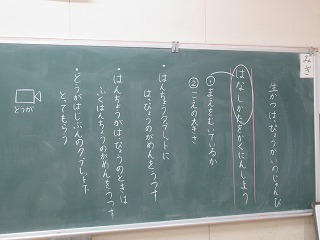 みぎ
生かつはっぴょうかいのじゅんび
はなしかたをかくにんしよう
①まえをむいているか
②こえの大きさ
・はんちょうタブレットに
はっぴょうのがめんをうつす
・はんちょうがはっぴょうのときは
ふくはんちょうのがめんをうつす
・どうがはじぶんのタブレットで
とってもらう
どうが